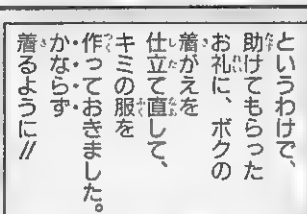 というわけで、
助けてもらった
お礼に、ボクの
着がえを
仕立て直して、
キミの服を
作っておきました。
かならず
着るように!!